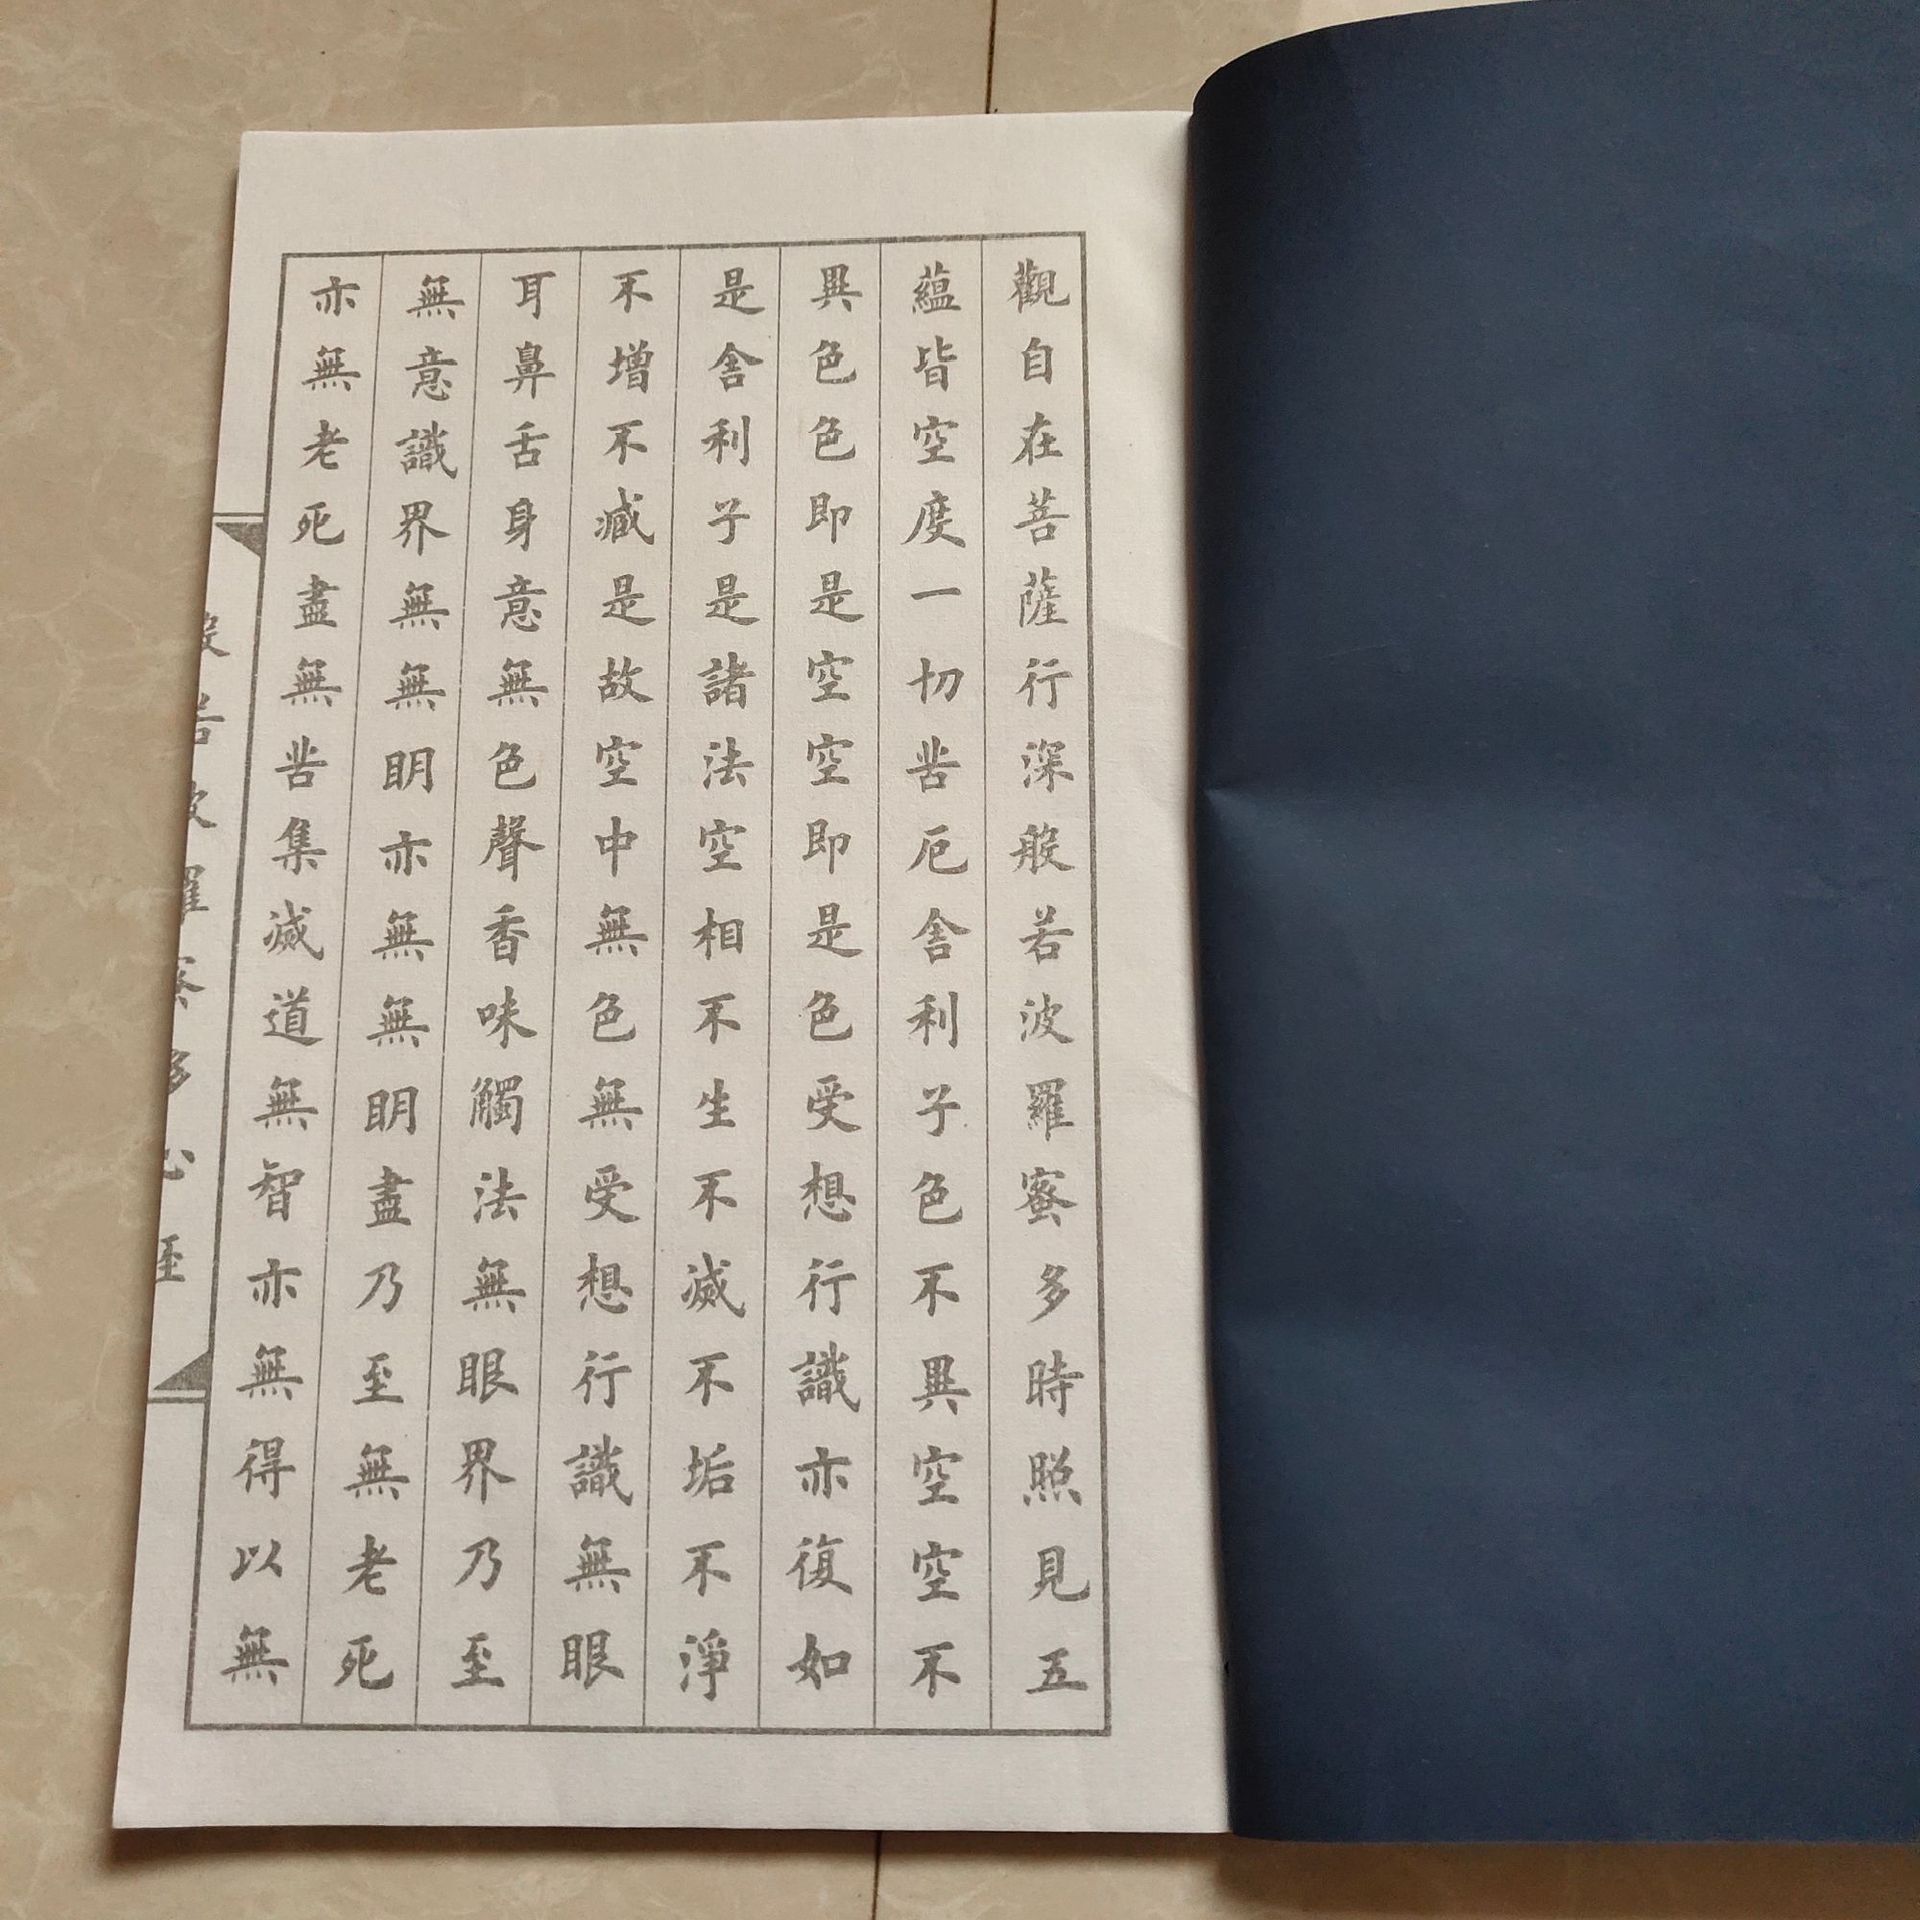 觀自在菩薩行深般若波羅蜜多時照見五
蘊皆空度一切苦厄舍利子色不異空空不
異色色即是空空即是色受想行識亦復如
是舍利子是諸法空相不生不滅不垢不淨
不增不減是故空中無色無受想行識無眼
耳鼻舌身意無色聲香味觸法無眼界乃至
無意識界無無明亦無無明盡乃至無老死
亦無老死盡無苦集滅道無智亦無得以無
般若波羅蜜多心經